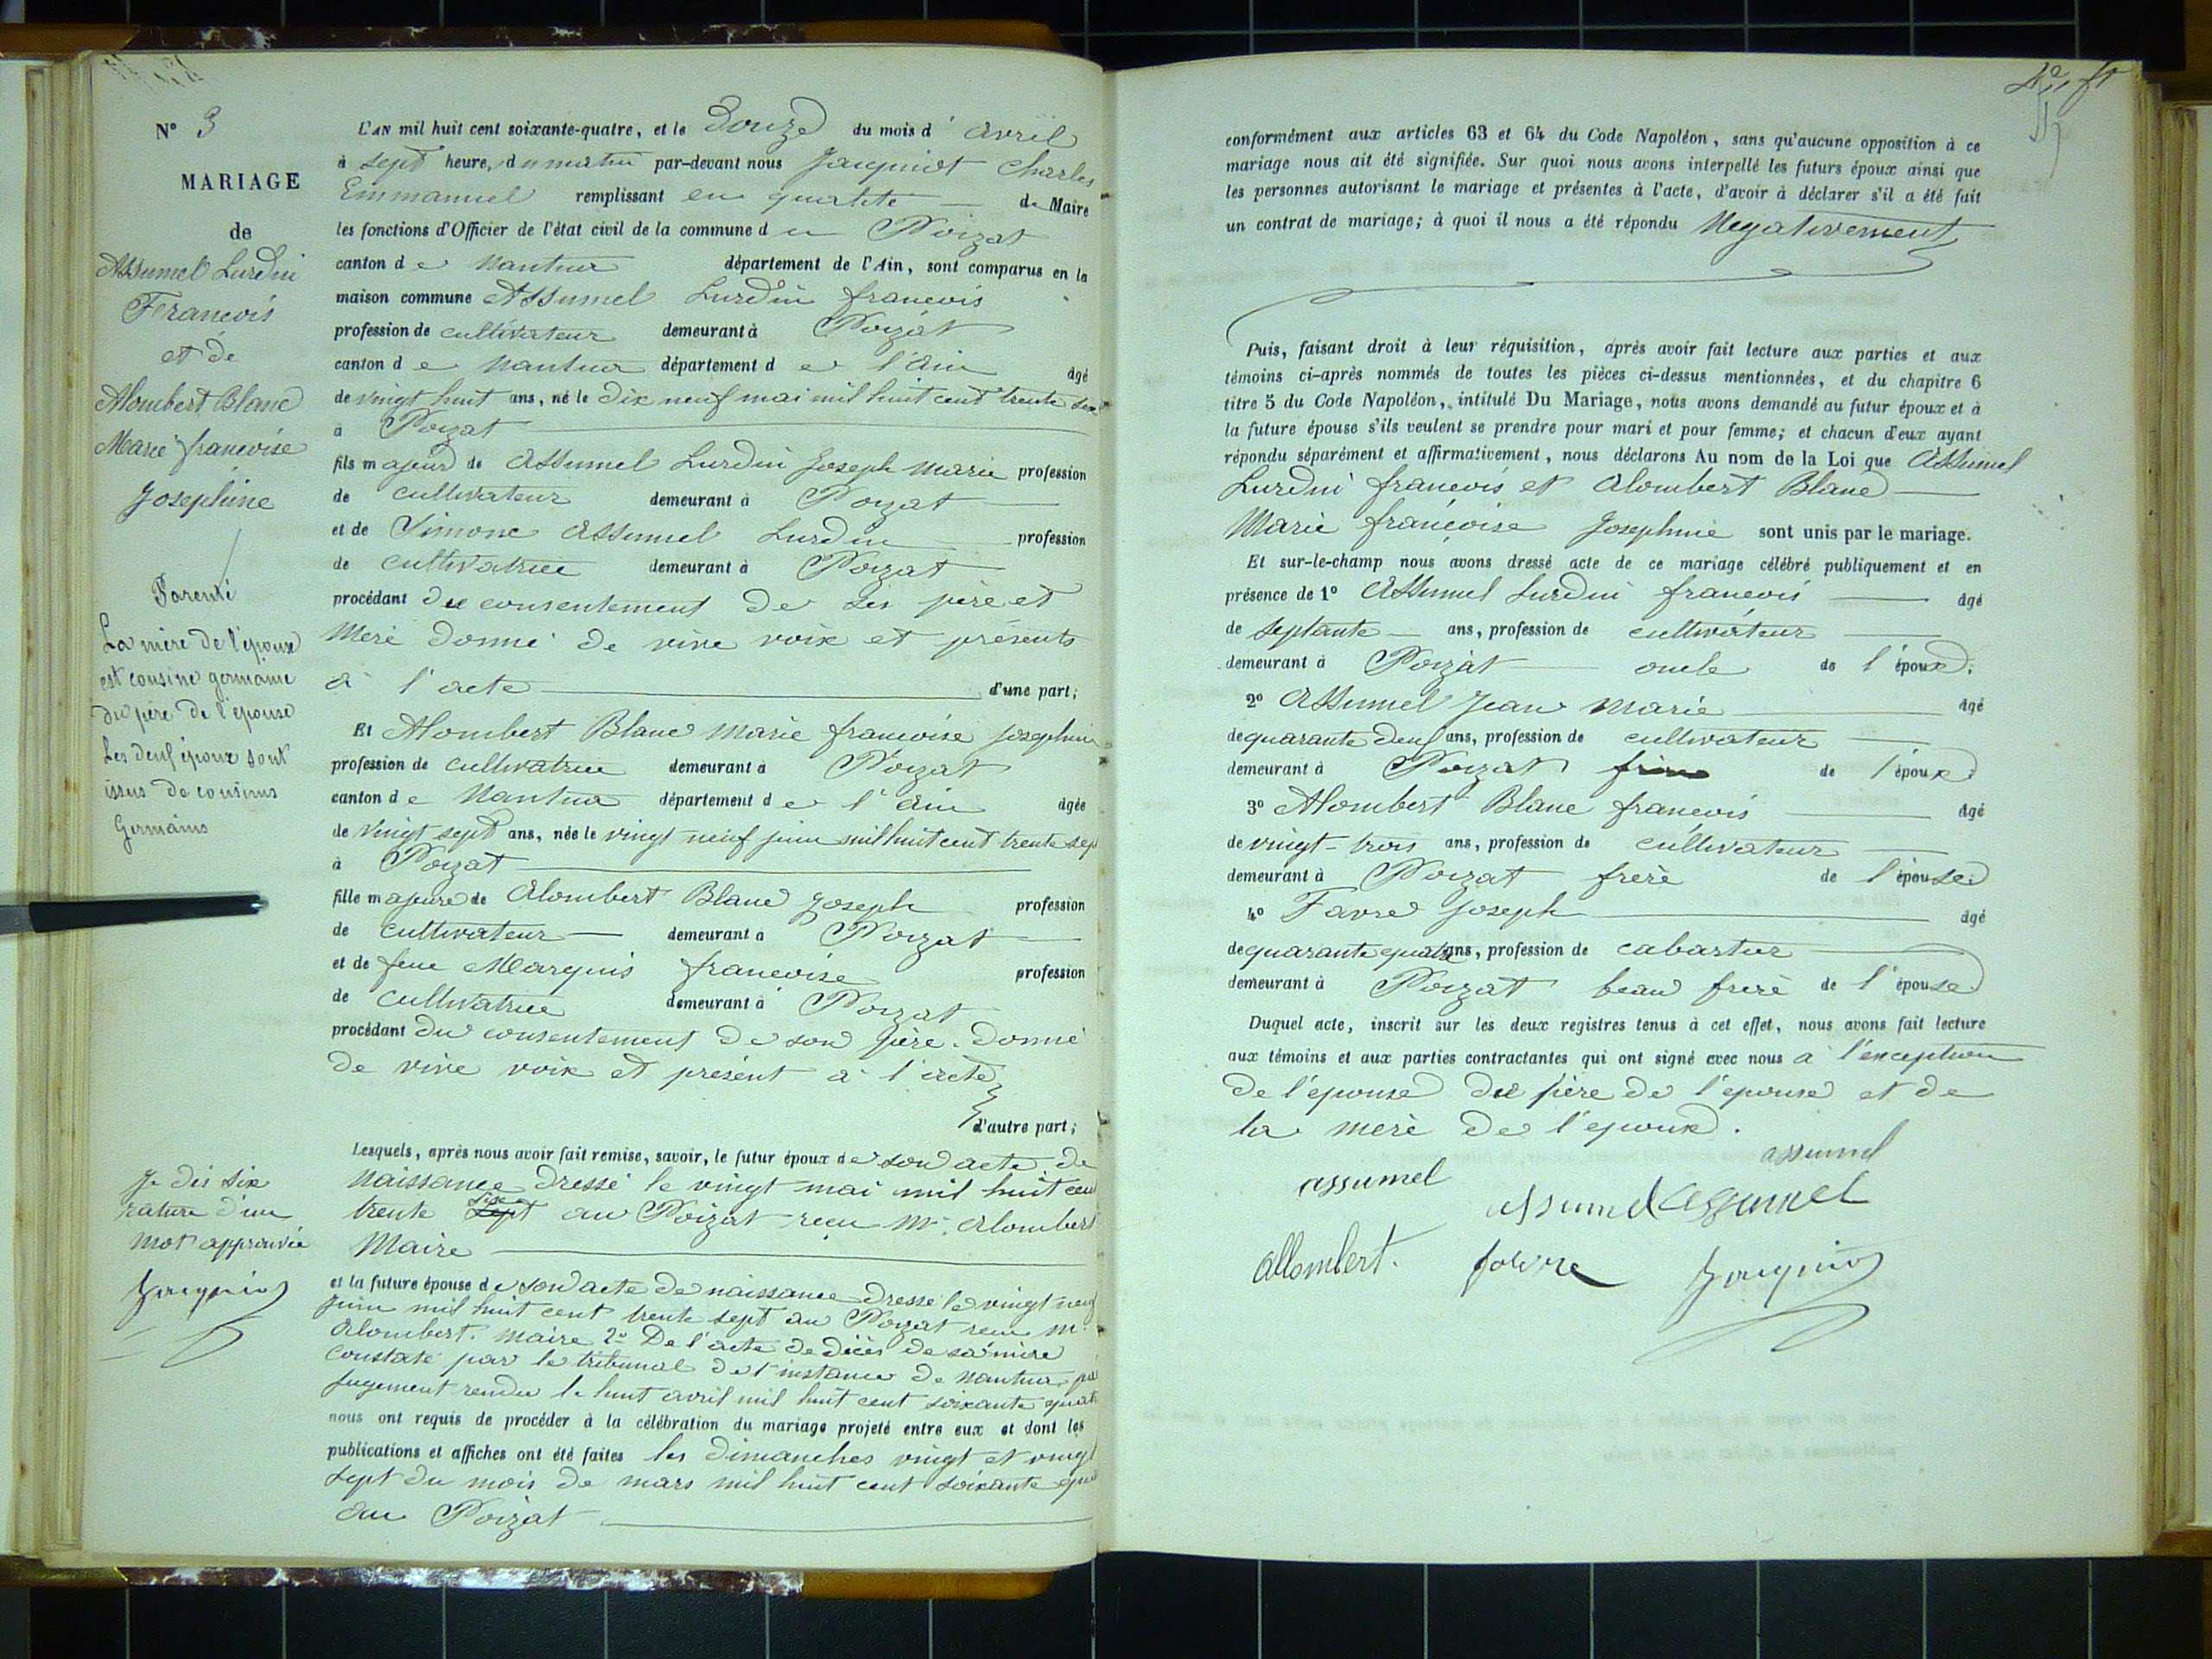 N° 3
MARIAGE
de
Assumel Lurdin
François
et de
Alombert Blanc
Marie françoise
Josephine
Parenté
La mère de l'époux
est cousine germaine
du père de l'épouse
Les deux époux sont
issus de cousins
Germains
Je dis six
rature d'un
mot approuvée
Jacquiot
L'AN mil huit cent soixante-quatre, et le Douze du mois d' avril
à sept heure, du matin par-devant nous Jacquiot Charles
Emmanuel remplissant en qualité de Maire
les fonctions d'Officier de l'état civil de la commune du Poizat
canton de Nantua département de l'Ain, sont comparus en la
maison commune Assumel Lurdin françois
profession de cultivateur demeurant à Poizat
canton de Nantua département de l'Ain âgé
de vingt huit ans, né le dix neuf mai mil huit cent trente six
à Poizat
fils majeur de Assumel Lurdin Joseph Marie profession
de cultivateur demeurant à Poizat
et de Simone Assumel Lurdin profession
de cultivatrice demeurant à Poizat
procédant du consentement de ses père et
Mère donné de vive voix et présents
à l'acte d'une part;
Et Alombert Blanc Marie françoise Josephine
profession de cultivatrice demeurant à Poizat
canton de Nantua département de l'Ain âgée
de vingt sept ans, née le vingt neuf juin mil huit cent trente sept
à Poizat
fille majeure de Alombert Blanc Joseph profession
de cultivateur demeurant à Poizat
et de feue Marquis françoise profession
de cultivatrice demeurant à Poizat
procédant du consentement de son père. donné
de vive voix et présent à l'acte
d'autre part;
Lesquels, après nous avoir fait remise, savoir, le futur époux de son acte de
naissance dressé le vingt mai mil huit cent
trente Sept six au Poizat reçu Mr Alombert
Maire
et la future épouse de son acte de naissance dressé le vingt neuf
juin mil huit cent trente sept au Poizat reçu Mr
Alombert. Maire 2° De l'acte de décès de sa mère
constaté par le tribunal de 1re instance de Nantua par
jugement rendu le huit avril mil huit cent soixante quatre
nous ont requis de procéder à la célébration du mariage projeté entre eux et dont les
publications et affiches ont été faites les dimanches vingt et vingt
sept du mois de mars mil huit cent soixante quatre
au Poizat
conformément aux articles 63 et 64 du Code Napoléon, sans qu'aucune opposition à ce
mariage nous ait été signifiée. Sur quoi nous avons interpellé les futurs époux ainsi que
les personnes autorisant le mariage et présentes à l'acte, d'avoir à déclarer s'il a été fait
un contrat de mariage; à quoi il nous a été répondu Negativement
Puis, faisant droit à leur réquisition, après avoir fait lecture aux parties et aux
témoins ci-après nommés de toutes les pièces ci-dessus mentionnées, et du chapitre 6
titre 5 du Code Napoléon, intitulé Du Mariage, nous avons demandé au futur époux et à
la future épouse s'ils veulent se prendre pour mari et pour femme; et chacun d'eux ayant
répondu séparément et affirmativement, nous déclarons Au nom de la Loi que Assumel
Lurdin françois et Alombert Blanc
Marie françoise Josephine sont unis par le mariage.
Et sur-le-champ nous avons dressé acte de ce mariage célébré publiquement et en
présence de 1° Assumel Lurdin françois âgé
de septante ans, profession de cultivateur
demeurant à Poizat oncle de l'époux.
2° Assumel Jean Marie âgé
de quarante deux ans, profession de cultivateur
demeurant à Poizat frère de l'époux
3° Alombert Blanc françois âgé
de vingt-trois ans, profession de cultivateur
demeurant à Poizat frère de l'épouse
4° Favre Joseph âgé
de quarante quatre ans, profession de cabartier
demeurant à Poizat beau frère de l'épouse
Duquel acte, inscrit sur les deux registres tenus à cet effet, nous avons fait lecture
aux témoins et aux parties contractantes qui ont signé avec nous à l'exception
de l'épouse du père de l'épouse et de
la mère de l'époux.
assumel
assumel
assumel Assumel
allombert. favre Jacquiot